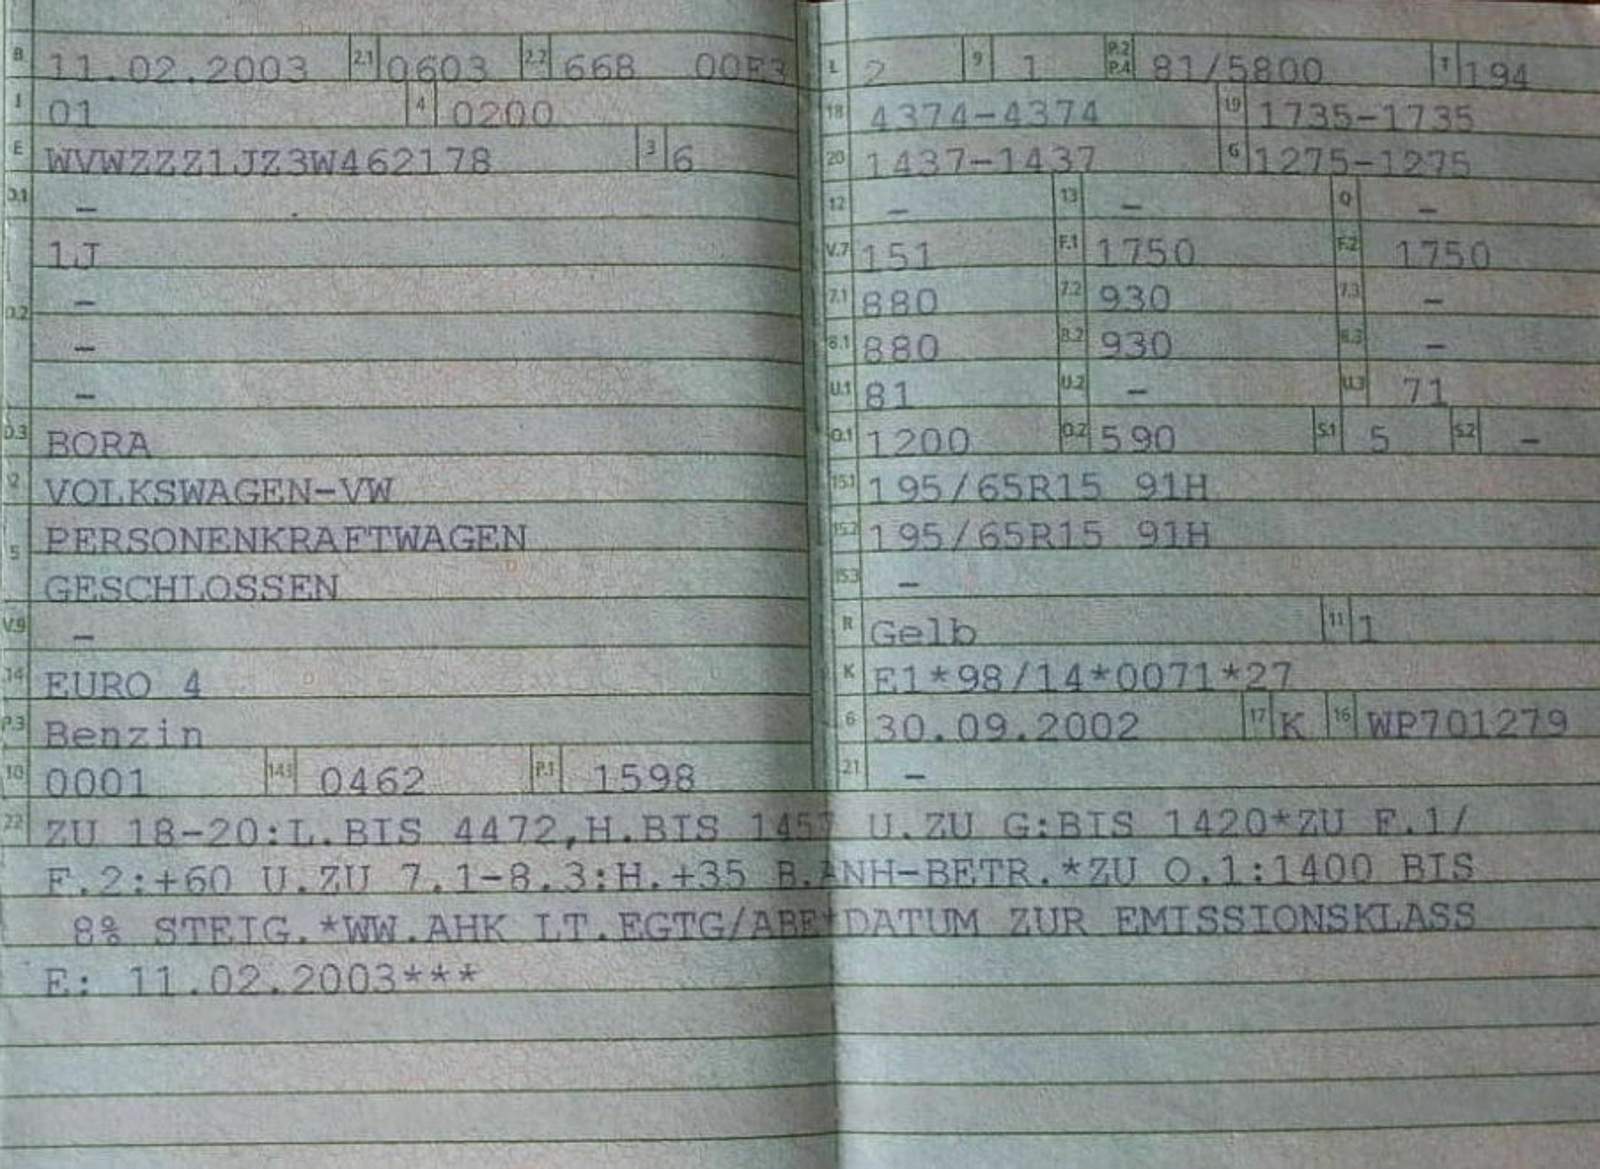 B 11.02.2003 2.1 0603 2.2 668 00E3
J 01 4 0200
E WVWZZZ1JZ3W462178 3 6
D.1 –
1J
D.2 –
–
–
D.3 BORA
2 VOLKSWAGEN-VW
5 PERSONENKRAFTWAGEN
GESCHLOSSEN
V.9 –
14 EURO 4
P.3 Benzin
10 0001 14.1 0462 P.1 1598
L 2 9 1 P.2 P.4 81/5800 T 194
18 4374-4374 19 1735-1735
20 1437-1437 G 1275-1275
12 – 13 – Q –
V.7 151 F.1 1750 F.2 1750
7.1 880 7.2 930 7.3 –
8.1 880 8.2 930 8.3 –
U.1 81 U.2 – U.3 71
O.1 1200 O.2 590 S.1 5 S.2 –
15.1 195/65R15 91H
15.2 195/65R15 91H
15.3 –
R Gelb 11 1
K E1*98/14*0071*27
6 30.09.2002 17 K 16 WP701279
21 –
22 ZU 18-20:L.BIS 4472,H.BIS 1457 U.ZU G:BIS 1420*ZU F.1/
F.2:+60 U.ZU 7.1-8.3:H.+35 B.ANH-BETR.*ZU O.1:1400 BIS
8% STEIG.*WW.AHK LT.EGTG/ABE*DATUM ZUR EMISSIONSKLASS
E: 11.02.2003***